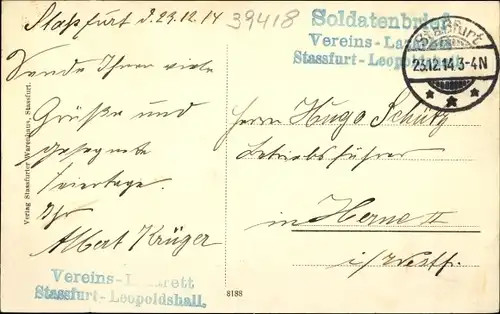 Staßfurt d. 23.12.14
39418
Soldatenbrief
Vereins-Lazarett
Stassfurt-Leopoldshall.
Staßfurt
23.12.14.3-4N
Sende Ihnen viele
Grüße und
gesegnete
Feiertage.
Ihr
Albert Krüger
Herrn Hugo Schütz
Betriebsführer
in Herne II
i/Westf.
Verlag Stassfurter Warenhaus, Stassfurt.
Vereins-Lazarett
Stassfurt-Leopoldshall.
8188